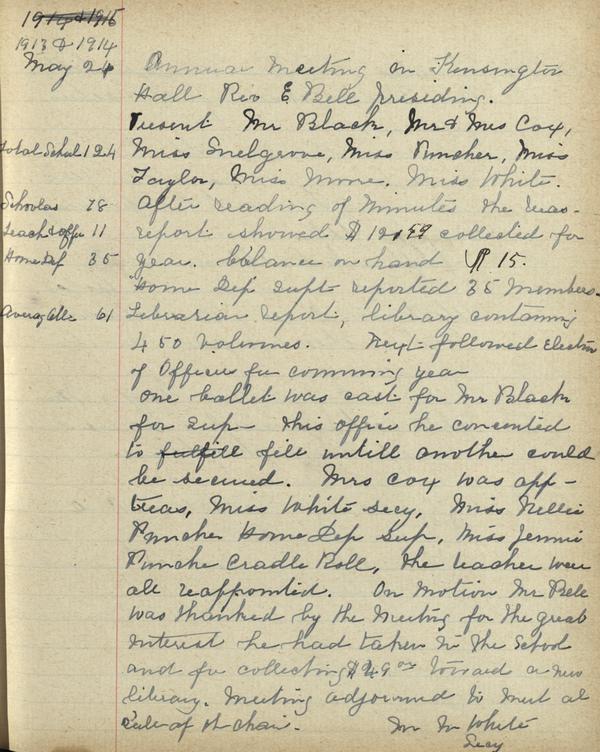 1914 & 1915
1913 & 1914
May 24
Annual Meeting in Kensington
Hall Rev E Bell presiding.
Present Mr Black, Mr & Mrs Cox,
Total Schol 124
Miss Snelgrove, Miss Puncher, Miss
Taylor, Miss Moore. Miss White.
Scholas 78
After reading of Minutes the treas-
Teach & offi 11
report showed $ collected for
Home Dep 35
year. balance on hand $ 15.
Home Dep supt reported 35 Members.
Averag Atte 61
Leberarian report, library containing
450 volumes. Next followed Election
of Officers for comming year
one ballet was cast for Mr Black
for sup- this office he concented
to fulfill fill untill another could
be secured. Mrs Cox was app-
treas, Miss White secy, Miss Nellie
Puncher Home Dep Sup, Miss Jennie
Punche Cradle Roll, the teacher were
all reappointed. On Motion Mr Bell
was thanked by the Meeting for the great
interest he had taken in the School
and for collecting $49 toward a new
library. Meeting adjourned to meet at
cale of th chair. M M White
Secy